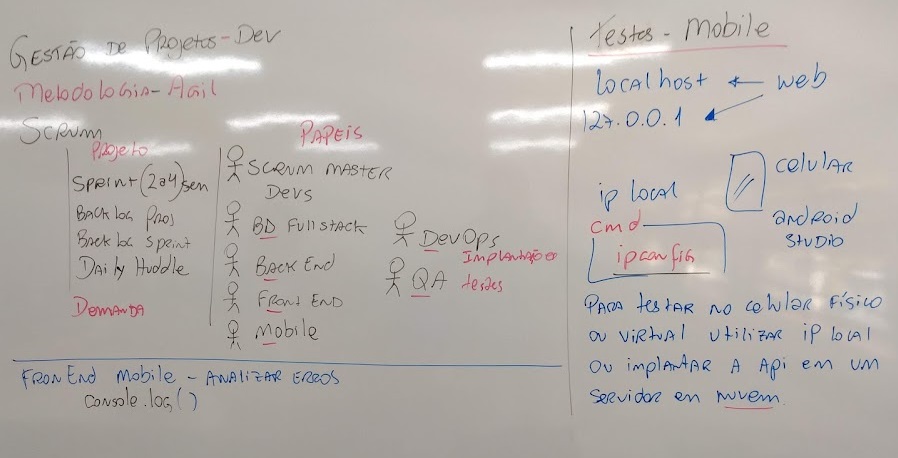 GESTÃO DE PROJETOS-DEV
METODOLOGIA-AGIL
SCRUM
PROJETO
SPRINT (2a4) sem
BACKLOG PROS
BACKLOG SPRINT
DAILY HUDDLE
DEMANDA
PAPEIS
SCRUM MASTER
DEVS
BD FULLSTACK
BACK END
FRONT END
MOBILE
DEVOPS
IMPLANTAÇÃO
QA testes
FRONEND MOBILE - ANALIZAR ERROS
console.log()
testes - Mobile
localhost ← web
127.0.0.1
celular
ip local
android
studio
cmd
ipconfig
PARA testar no celular físico
ou virtual utilizar ip local
ou implantar a Api em um
servidor en nuvem.